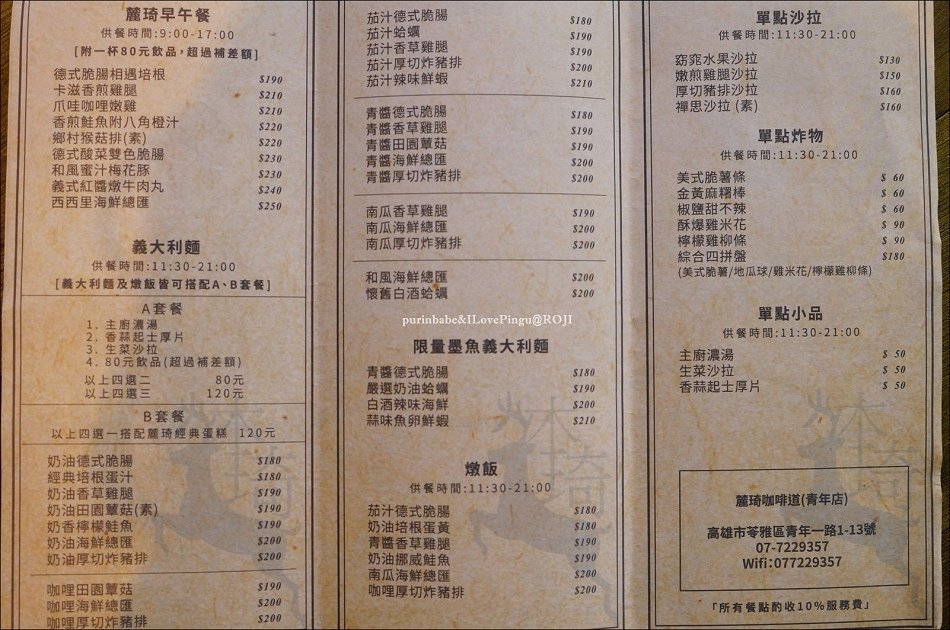 麓琦早午餐
供餐時間:9:00-17:00
[附一杯80元飲品,超過補差額]
德式脆腸相遇培根 $190
卡滋香煎雞腿 $210
爪哇咖哩嫩雞 $210
香煎鮭魚附八角橙汁 $220
鄉村猴菇排(素) $220
德式酸菜雙色脆腸 $230
和風蜜汁梅花豚 $230
義式紅醬燉牛肉丸 $240
西西里海鮮總匯 $250
義大利麵
供餐時間:11:30-21:00
[義大利麵及燉飯皆可搭配A、B套餐]
A套餐
1. 主廚濃湯
2. 香蒜起士厚片
3. 生菜沙拉
4. 80元飲品(超過補差額)
以上四選二 80元
以上四選三 120元
B套餐
以上四選一搭配麓琦經典蛋糕 120元
奶油德式脆腸 $180
經典培根蛋汁 $180
奶油香草雞腿 $190
奶油田園蕈菇(素) $190
奶香檸檬鮭魚 $190
奶油海鮮總匯 $200
奶油厚切炸豬排 $200
咖哩田園蕈菇 $190
咖哩海鮮總匯 $200
咖哩厚切炸豬排 $200
茄汁德式脆腸 $180
茄汁蛤蠣 $190
茄汁香草雞腿 $190
茄汁厚切炸豬排 $200
茄汁辣味鮮蝦 $210
青醬德式脆腸 $180
青醬香草雞腿 $190
青醬田園蕈菇 $190
青醬海鮮總匯 $200
青醬厚切炸豬排 $200
南瓜香草雞腿 $190
南瓜海鮮總匯 $200
南瓜厚切炸豬排 $200
和風海鮮總匯 $200
懷舊白酒蛤蠣 $200
purinbabe&ILovePingu@ROJI
限量墨魚義大利麵
青醬德式脆腸 $180
嚴選奶油蛤蠣 $190
白酒辣味海鮮 $200
蒜味魚卵鮮蝦 $210
燉飯
供餐時間:11:30-21:00
茄汁德式脆腸 $180
奶油培根蛋黃 $180
青醬香草雞腿 $190
奶油挪威鮭魚 $190
南瓜海鮮總匯 $200
咖哩厚切炸豬排 $200
單點沙拉
供餐時間:11:30-21:00
窈窕水果沙拉 $130
嫩煎雞腿沙拉 $150
厚切豬排沙拉 $160
禪思沙拉 (素) $160
單點炸物
供餐時間:11:30-21:00
美式脆薯條 $ 60
金黃麻糬棒 $ 60
椒鹽甜不辣 $ 60
酥爆雞米花 $ 90
檸檬雞柳條 $ 90
綜合四拼盤 $180
(美式脆薯/地瓜球/雞米花/檸檬雞柳條)
單點小品
供餐時間:11:30-21:00
主廚濃湯 $ 50
生菜沙拉 $ 50
香蒜起士厚片 $ 50
麓琦咖啡道(青年店)
高雄市苓雅區青年一路1-13號
07-7229357
Wifi:077229357
「所有餐點酌收10%服務費」